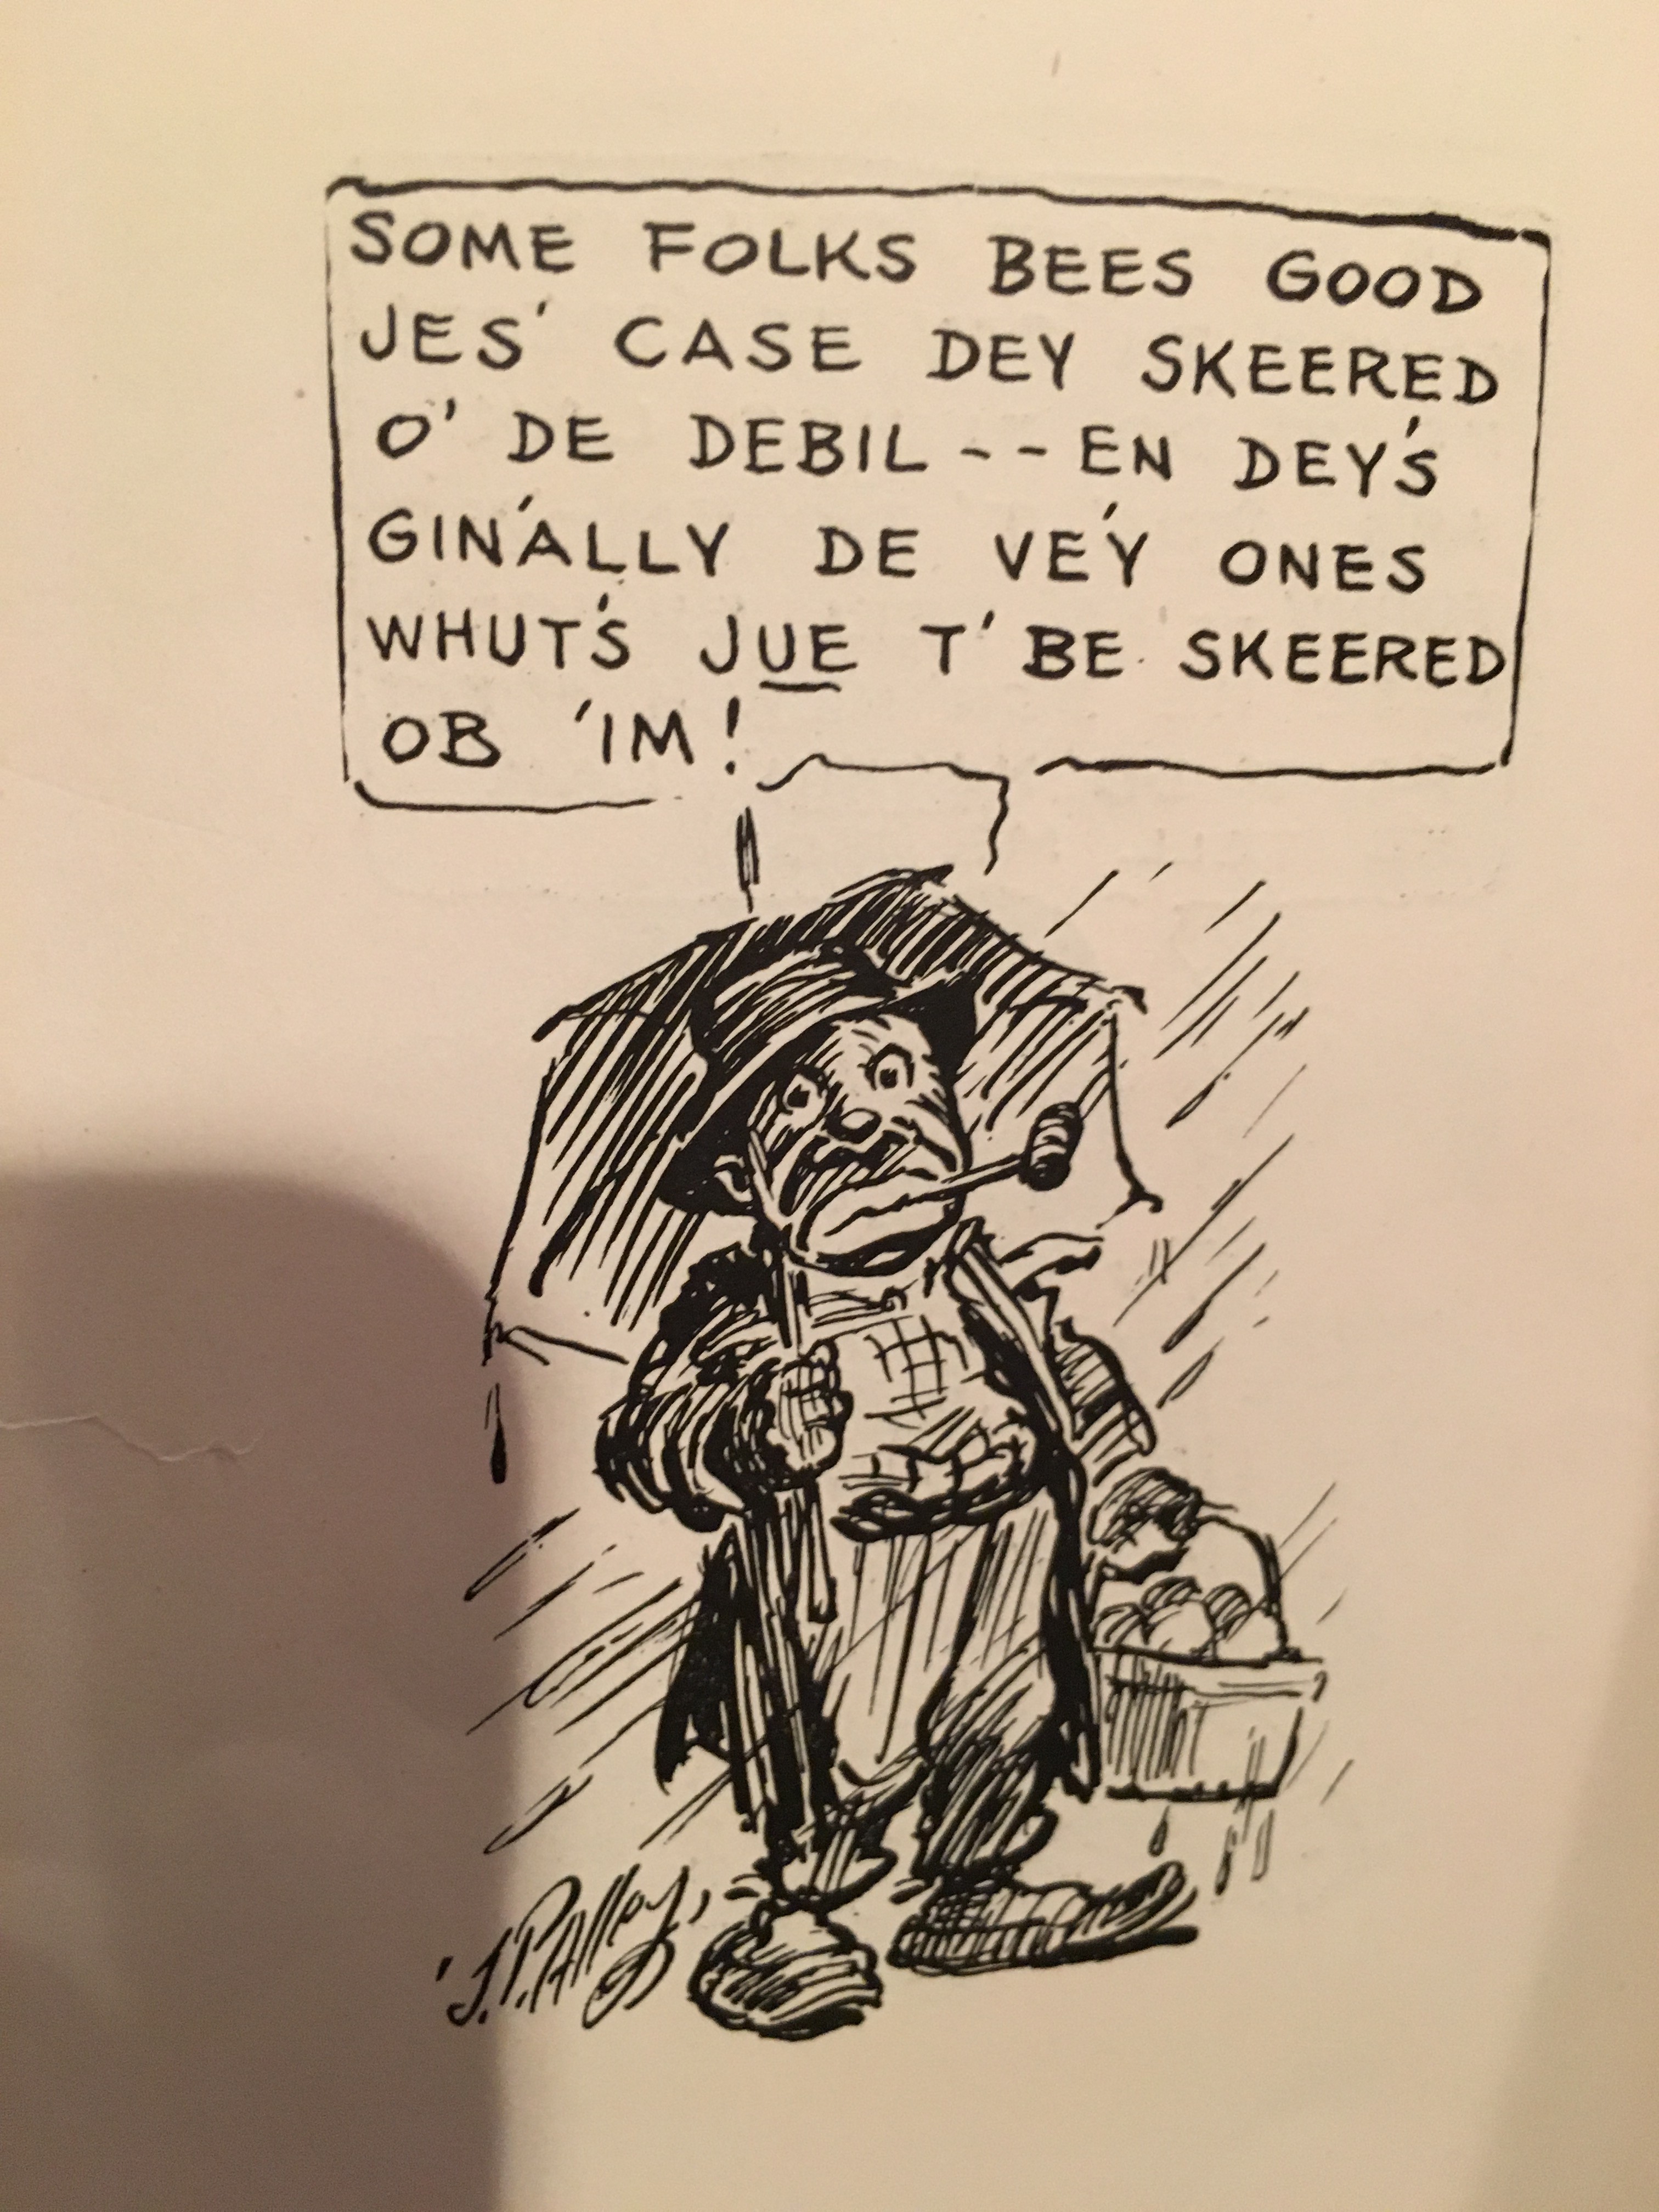 SOME FOLKS BEES GOOD
JES' CASE DEY SKEERED
O' DE DEBIL -- EN DEY'S
GIN'ALLY DE VE'Y ONES
WHUT'S JUE T' BE SKEERED
OB 'IM!
J.P. Alley